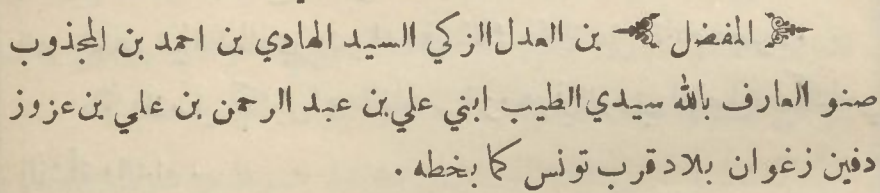 المفضل بن العدل الزكي السيد الهادي بن احمد بن المجذوب
صنو العارف بالله سيدي الطيب ابني علي بن عبد الرحمن بن علي بن عزوز
دفين زغوان بلاد قرب تونس كما بخطه .